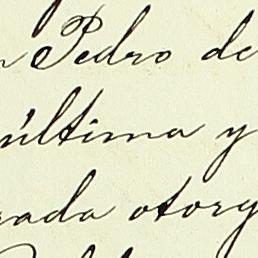 Pedro de
última y
rada otorg